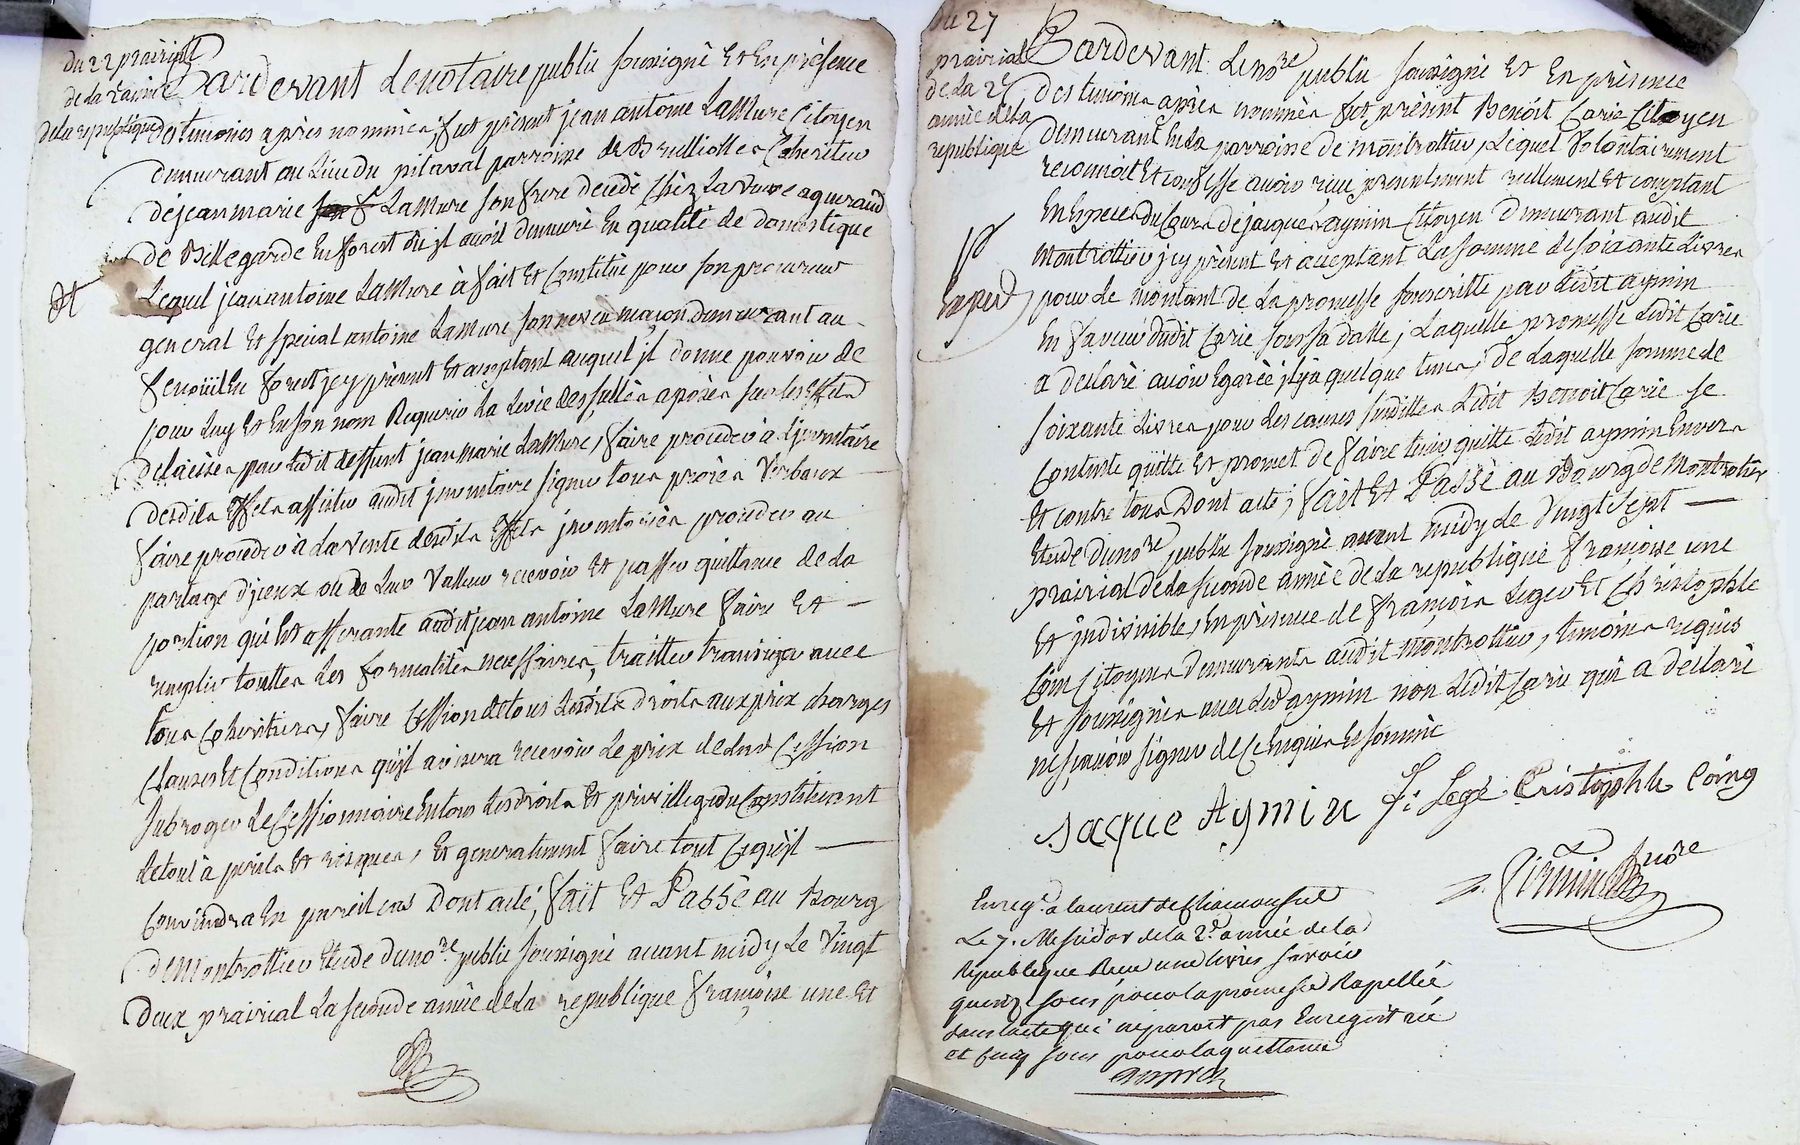 du 22 prairial
de la 2 année
de la republique
Pardevant le notaire public soussigné Et En présence
des temoins après nommés, fut présent jean antoine LaMure Citoyen
demeurant au Lieu du pitaval parroisse de Brulliolles Coheritier
de jean marie LaMure son frere decedé Chéz La veuve aqueraud
de Bellegarde En forest où jl avoit demeuré En qualité de domestique
Lequel jean antoine LaMure à fait Et Constitué pour son procureur
general Et special antoine LaMure son neveu maçon demeurant au
fenoüil En forest jcy présent Et acceptant auquel jl donne pouvoir de
pour Luy Et En son nom Requerir La Levée des sçellés aposés sur les Effets
delaissés par Ledit deffunt jean marie LaMure, faire proceder à L'jnventaire
desdits Effets assister audit jnventaire signer tous procès Verbaux
faire proceder à La vente desdits Effets jnventoriés proceder au
partage d'jceux ou de Leur Valleur recevoir Et passer quittance de la
portion qui Est afferante audit jean antoine LaMure faire Et
remplir touttes Les formalités necessaires, traitter transiger avec
tous Coheritiers, faire Cession de tous Lesdits droits aux prix charges
Clauses Et Conditions qu'jl avisera recevoir Le prix de Ladite Cession
subroger Le Cessionnaire En tous Les droits Et privilleges du Constituant
le tout à perils Et risques, Et generalment faire tout Ce qu'jl
Conviendra En pareil cas Dont acte, fait Et Passé au Bourg
de Montrottier Etude du no.re public soussigné avant midy Le Vingt
deux prairial La seconde année de La republique françoise une Et
du 27
prairial
de la 2e
année de la
republique
Expedié
Pardevant Le no.re public soussigné Et En présence
des temoins après nommés fut présent Benoit Carie Citoyen
demeurant En La parroisse de Montrottier, Lequel Volontairement
reconnoit Et confesse avoir reçu presentement reellement Et comptant
En Especes du Cours de jacques aymin Citoyen demeurant audit
Montrottier jcy présent Et acceptant La somme de soixante Livres
pour Le montant de La promesse souscritte par Ledit aymin
En faveur dudit Carie sous sa datte, Laquelle promesse Ledit Carie
a declaré avoir Egarée jl y a quelque tems, de Laquelle somme de
soixante Livres pour Les causes susdittes Ledit Benoit Carie se
Contente quitte Et promet de faire tenir quitte Ledit aymin Envers
Et contre tous Dont acte, fait Et Passé au Bourg de Montrottier
Etude du no.re public soussigné avant midy Le Vingt sept
prairial de La seconde année de La republique françoise une
Et jndivisible, En présence de françois Leger Et Christophle
Coin Citoyens demeurants audit Montrottier, temoins requis
Et soussignés avec Ledit aymin non Ledit Carie qui a declaré
ne sçavoir signer de Ce Enquis Et sommé
Jaque Aymin f: Legé Cristophle Coing
Enreg.é a laurent de Chamousset
Le 7. Messidor de la 2.e année de la
Republique Reçu une livres savoir
quinze sous pour la promesse Rapellée
dans lacte qui ne paroit pas Enregistrée
et cinq sous pour la quittance